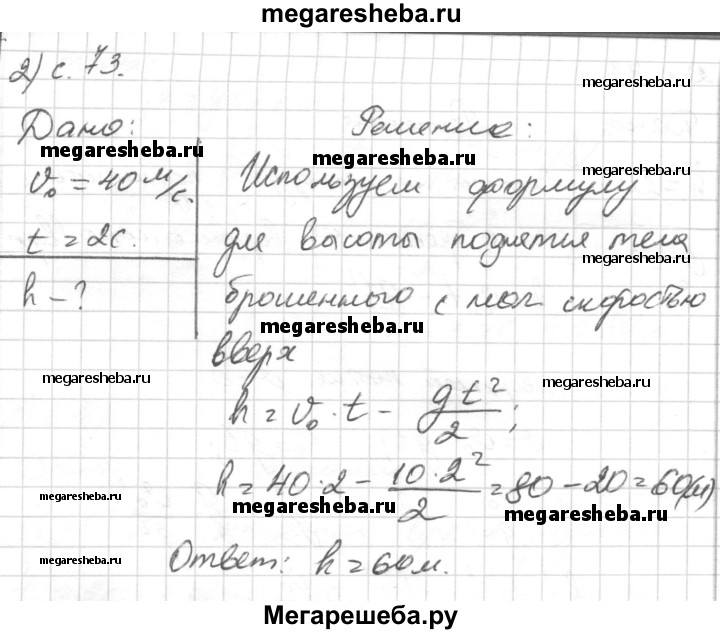 megaresheba.ru
2) с. 73.
megaresheba.ru
Дано: Решение:
megaresheba.ru megaresheba.ru
v₀ = 40 м/с. Используем формулу
megaresheba.ru
t = 2с. для высоты поднятия тела
megaresheba.ru
h - ? брошенного с нач скоростью
megaresheba.ru
вверх
megaresheba.ru megaresheba.ru
h = v₀ · t - gt²/2 ;
h = 40 · 2 - 10 · 2²/2 = 80 - 20 = 60(м)
megaresheba.ru megaresheba.ru megaresheba.ru
Ответ: h = 60м.
megaresheba.ru megaresheba.ru
Мегарешеба.ру